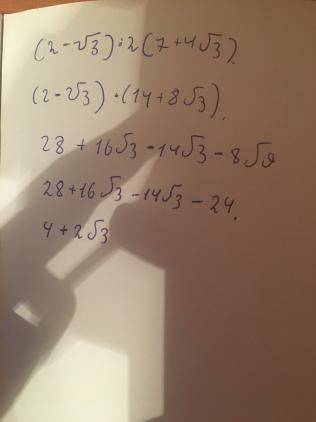 (2-√3)·2(7+4√3).
(2-√3)·(14+8√3).
28+16√3-14√3-8√9
28+16√3-14√3-24.
4+2√3